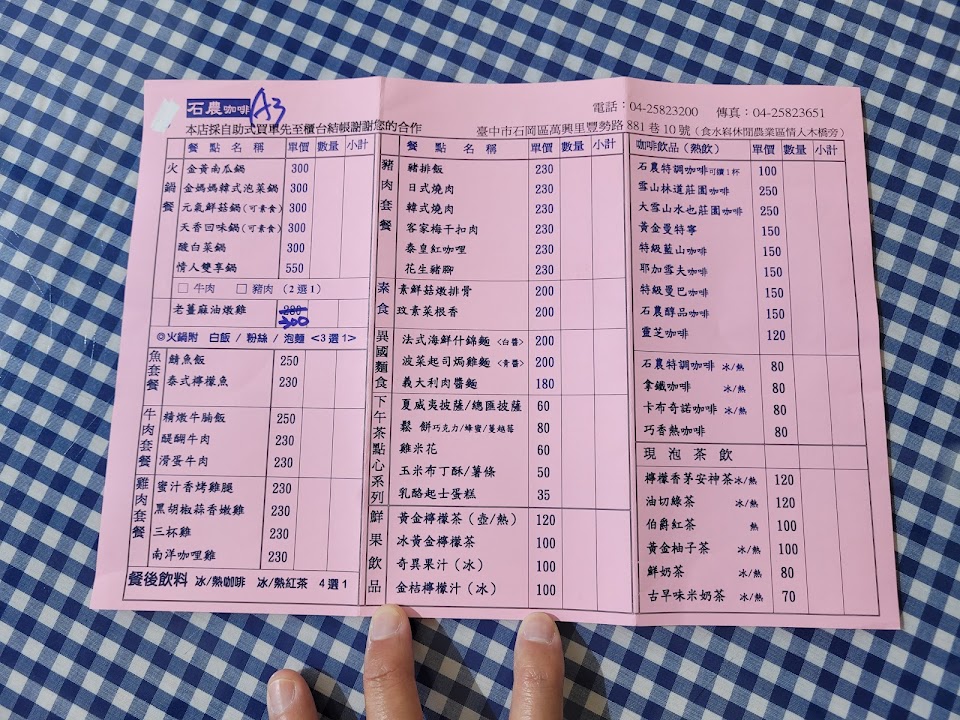 石農咖啡 A3
電話：04-25823200 傳真：04-25823651
本店採自助式買單先至櫃台結帳謝謝您的合作
臺中市石岡區萬興里豐勢路881巷10號（食水嵙休閒農業區情人木橋旁）
餐點名稱 單價 數量 小計
火鍋餐
金黃南瓜鍋 300
金媽媽韓式泡菜鍋 300
元氣鮮菇鍋(可素食) 300
天香回味鍋(可素食) 300
酸白菜鍋 300
情人雙享鍋 550
□ 牛肉 □ 豬肉（2選1）
老薑麻油燉雞 300
◎火鍋附 白飯 / 粉絲 / 泡麵 <3選1>
魚套餐
鯖魚飯 250
泰式檸檬魚 230
牛肉套餐
精燉牛腩飯 250
醍醐牛肉 230
滑蛋牛肉 230
雞肉套餐
蜜汁香烤雞腿 230
黑胡椒蒜香嫩雞 230
三杯雞 230
南洋咖哩雞 230
餐後飲料 冰/熱咖啡 冰/熱紅茶 4選1
餐點名稱 單價 數量 小計
豬肉套餐
豬排飯 230
日式燒肉 230
韓式燒肉 230
客家梅干扣肉 230
泰皇紅咖哩 230
花生豬腳 230
素食
素鮮菇燉排骨 200
玫素菜根香 200
異國麵食
法式海鮮什錦麵 <白醬> 200
波菜起司焗雞麵 <青醬> 200
義大利肉醬麵 180
下午茶點心系列
夏威夷披薩/總匯披薩 60
鬆餅巧克力/蜂蜜/蔓越莓 80
雞米花 60
玉米布丁酥/薯條 50
乳酪起士蛋糕 35
鮮果飲品
黃金檸檬茶（壺/熱） 120
冰黃金檸檬茶 100
奇異果汁（冰） 100
金桔檸檬汁（冰） 100
咖啡飲品（熱飲） 單價 數量 小計
石農特調咖啡可續1杯 100
雪山林道莊園咖啡 250
大雪山水也莊園咖啡 250
黃金曼特寧 150
特級藍山咖啡 150
耶加雪夫咖啡 150
特級曼巴咖啡 150
石農醇品咖啡 150
靈芝咖啡 120
石農特調咖啡 冰/熱 80
拿鐵咖啡 冰/熱 80
卡布奇諾咖啡 冰/熱 80
巧香熱咖啡 80
現泡茶飲
檸檬香茅安神茶冰/熱 120
油切綠茶 冰/熱 120
伯爵紅茶 熱 100
黃金柚子茶 冰/熱 100
鮮奶茶 冰/熱 80
古早味米奶茶 冰/熱 70